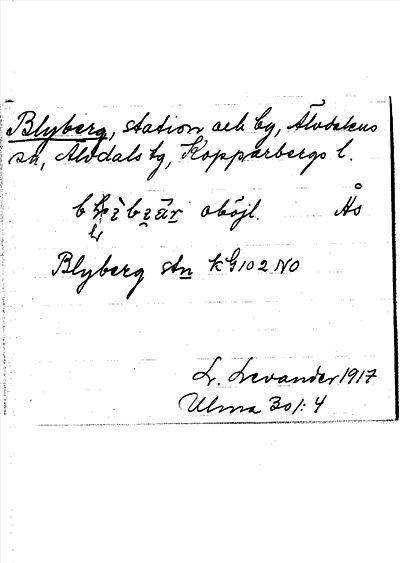 Blyberg, station och by, Älvdalens
sn, Älvdals tg, Kopparbergs l.
oböjl. Ås
Blyberg stn kG102 NO
L. Levander 1917
Ulma 301:4